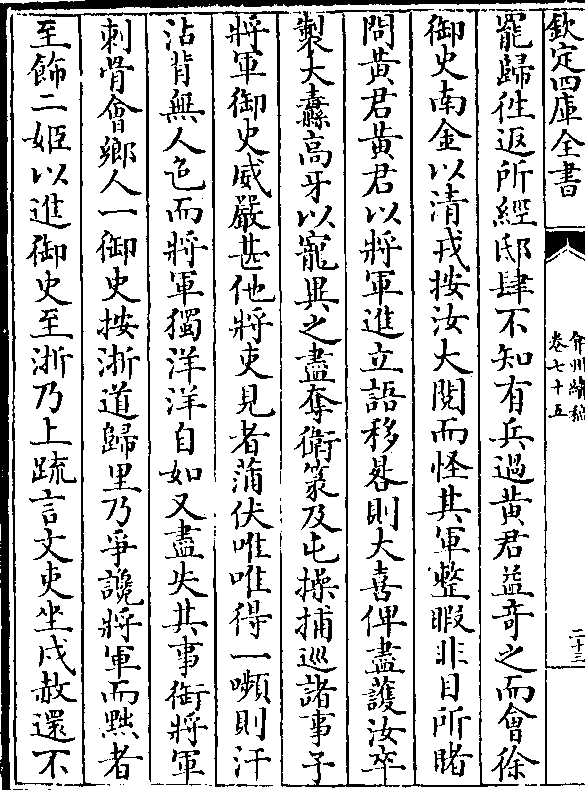 欽定四庫全書
弇州續稿
卷七十五
二十三
罷歸徃返所經邸肆不知有兵過黃君益竒之而會徐
御史南金以清戎按汝大閱而怪其軍整暇非目所睹
問黃君黃君以將軍進立語移晷則大喜俾盡護汝卒
製大纛高牙以寵異之盡奪衛篆及屯操捕巡諸事予
將軍御史威嚴甚他將吏見者蒲伏唯唯得一嚬則汗
沾背無人色而將軍獨洋洋自如又盡失其事銜將軍
刺骨會鄉人一御史按浙道歸里乃爭讒將軍而黠者
至飾二姬以進御史至浙乃上疏言文吏坐戍赦還不